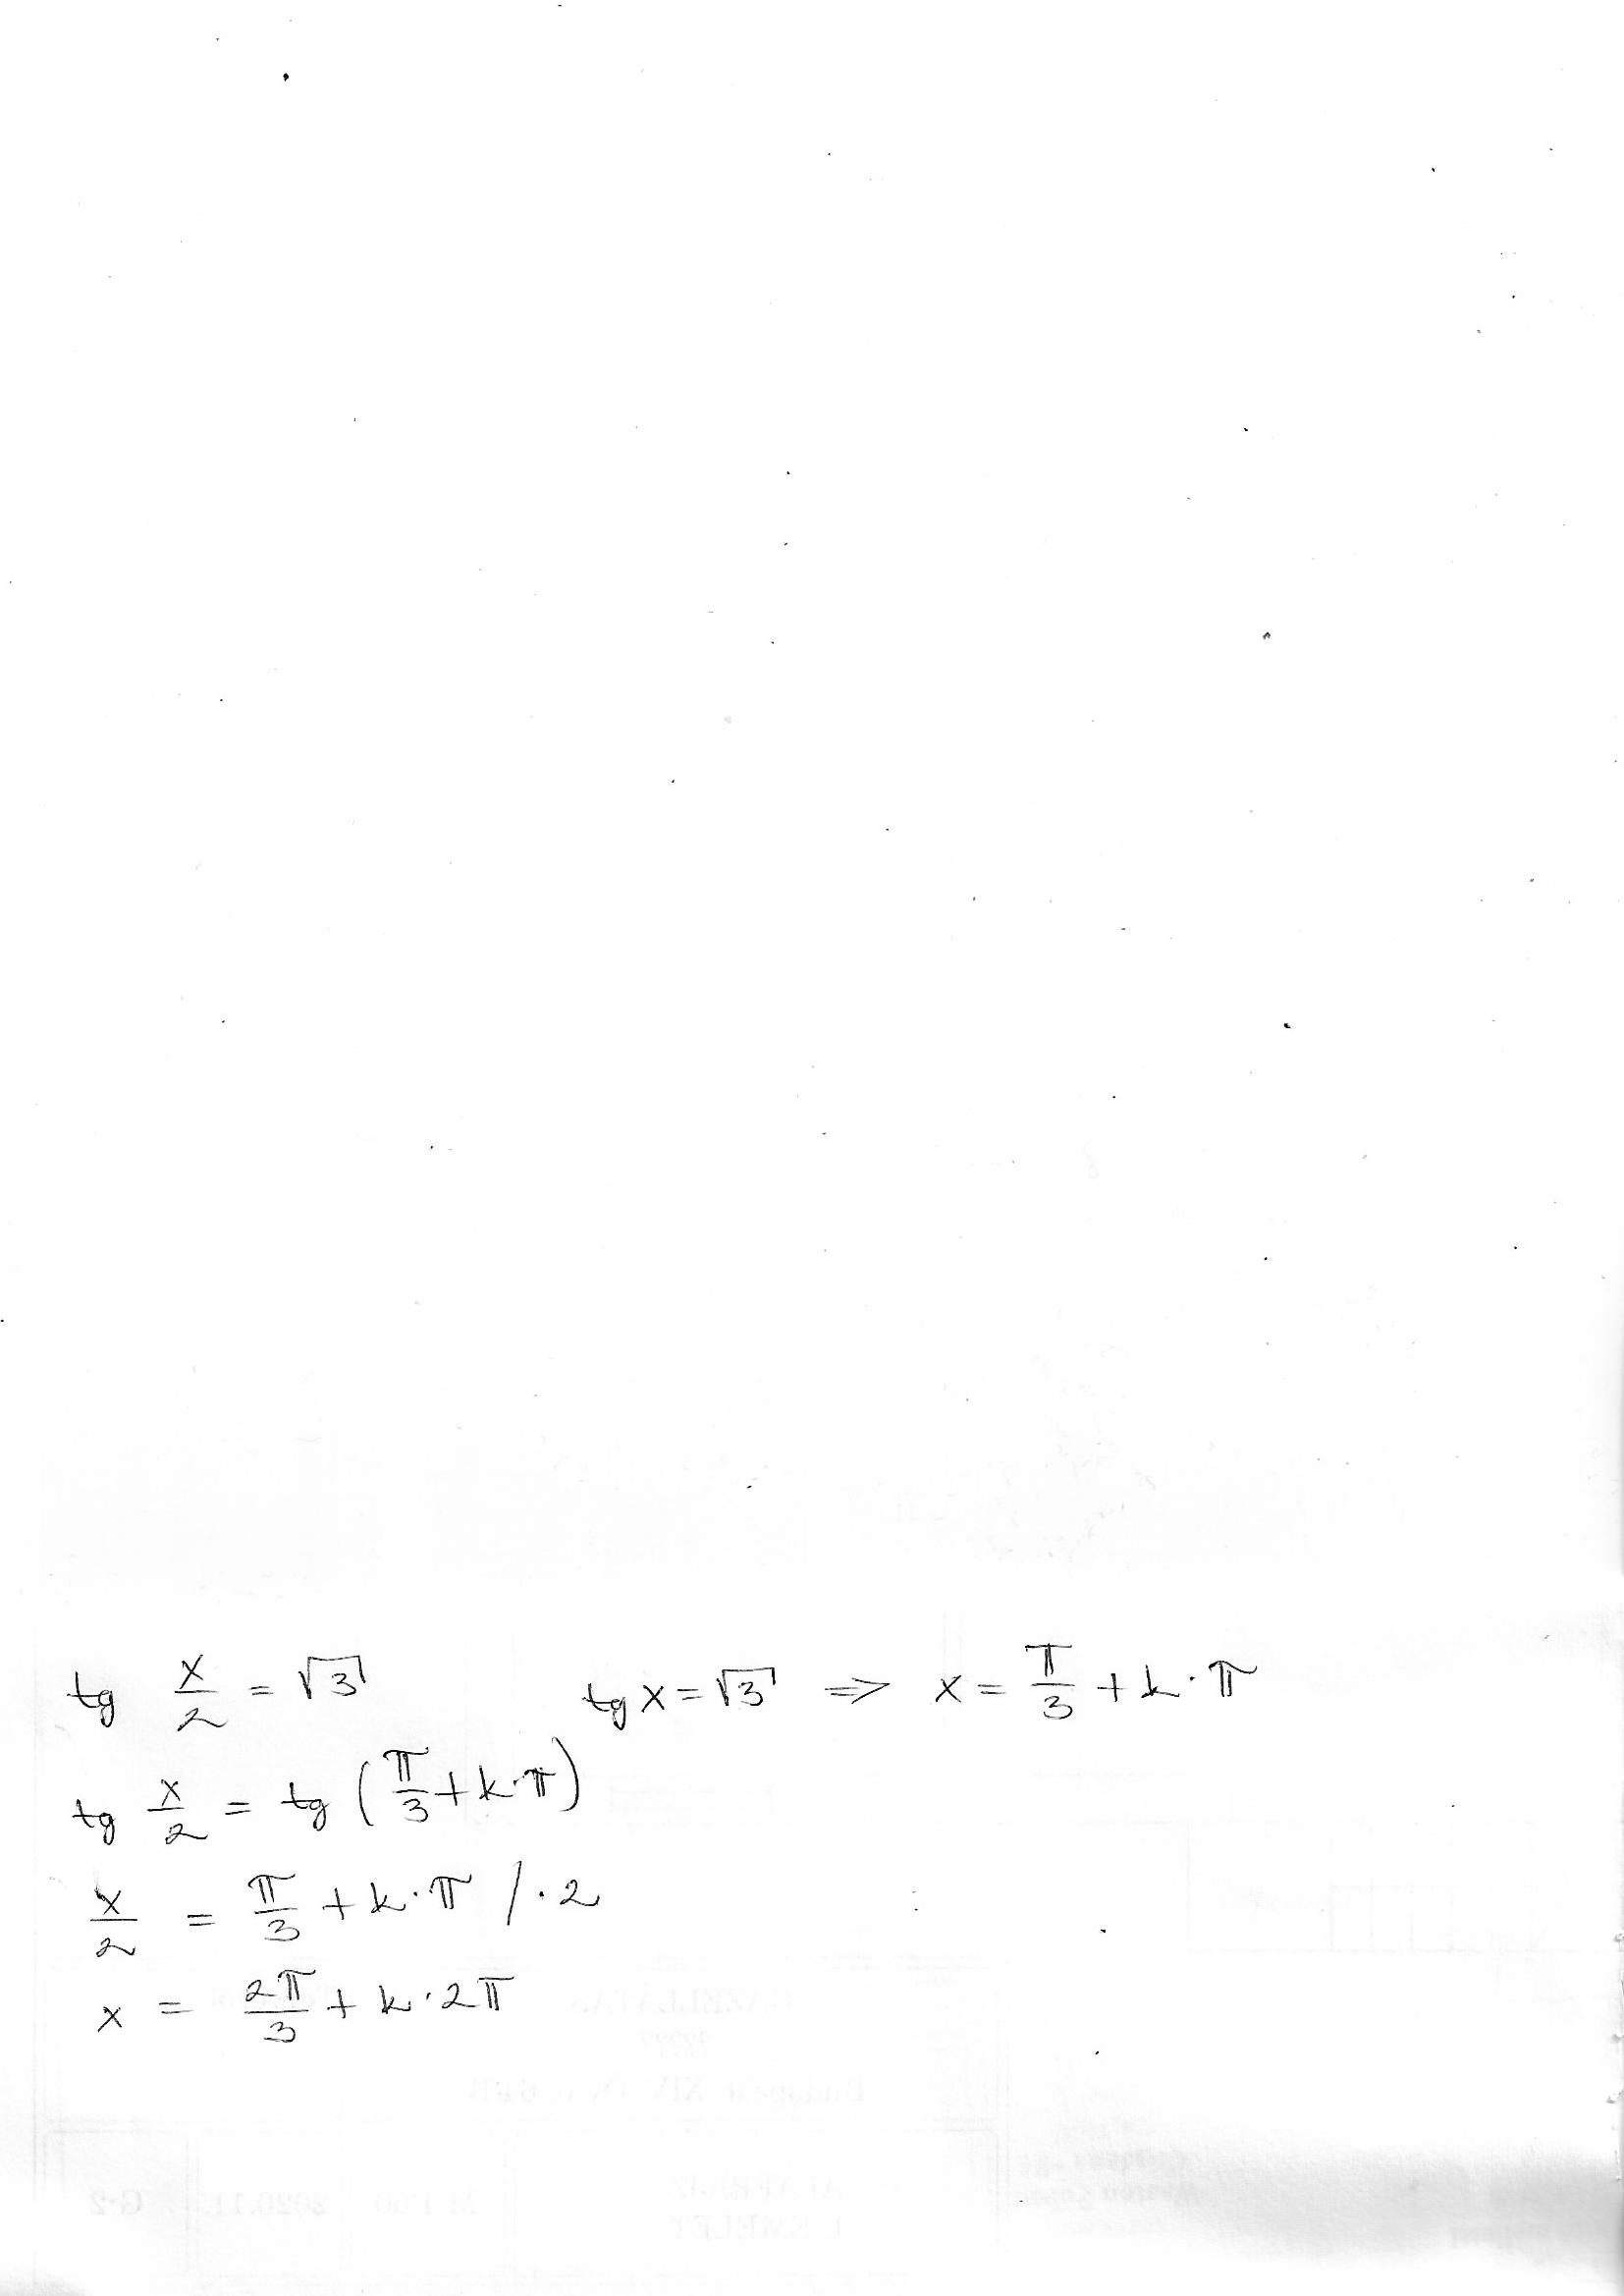 tg x/2 = √3 tg x = √3 => x = π/3 + k·π
tg x/2 = tg (π/3 + k·π)
x/2 = π/3 + k·π /·2
x = 2π/3 + k·2π